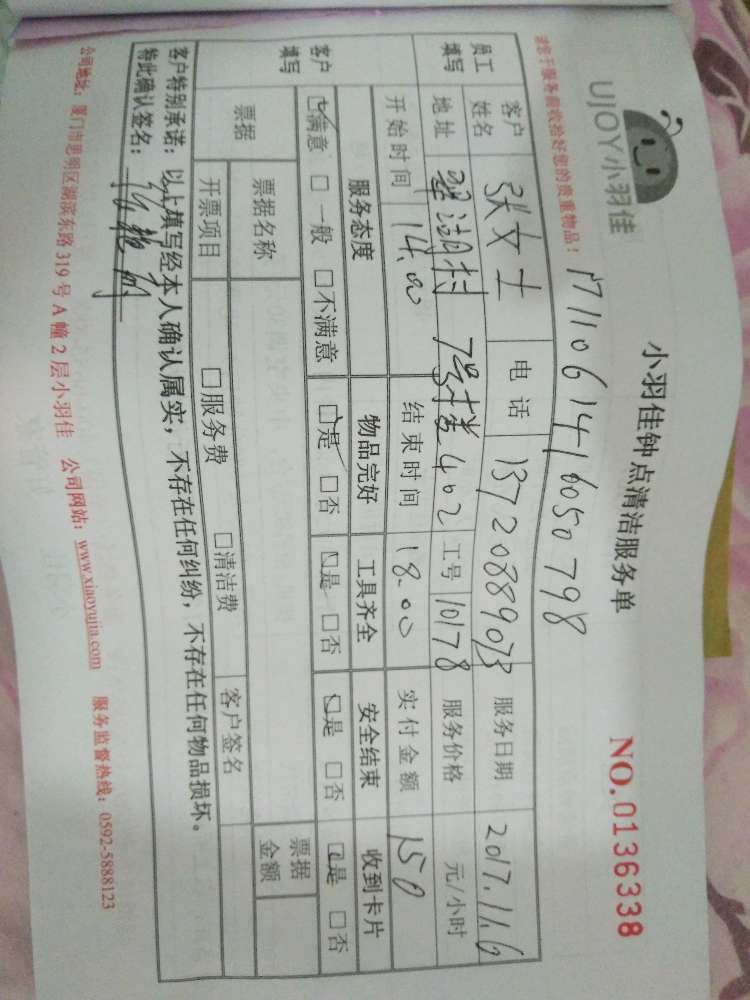 UJOY小羽佳
小羽佳钟点清洁服务单
NO.0136338
请您于服务前收拾好您的贵重物品！
1711061416050798
员工填写
客户姓名 张女士 电话 13720889073 服务日期 2017.11.6
地址 翠湖村 7号楼402 工号 10178 服务价格 元/小时
开始时间 14.00 结束时间 18.00 实付金额 150
客户填写
服务态度 物品完好 工具齐全 安全结束 收到卡片
☑满意 □一般 □不满意 ☑是 □否 ☑是 □否 ☑是 □否 ☑是 □否
票据 票据名称 票据金额
开票项目 □服务费 □清洁费 客户签名
客户特别承诺：以上填写经本人确认属实，不存在任何纠纷，不存在任何物品损坏。
特此确认签名：
公司地址：厦门市思明区湖滨东路319号A幢2层小羽佳 公司网站：www.xiaoyujia.com 服务监督热线：0592-5888123